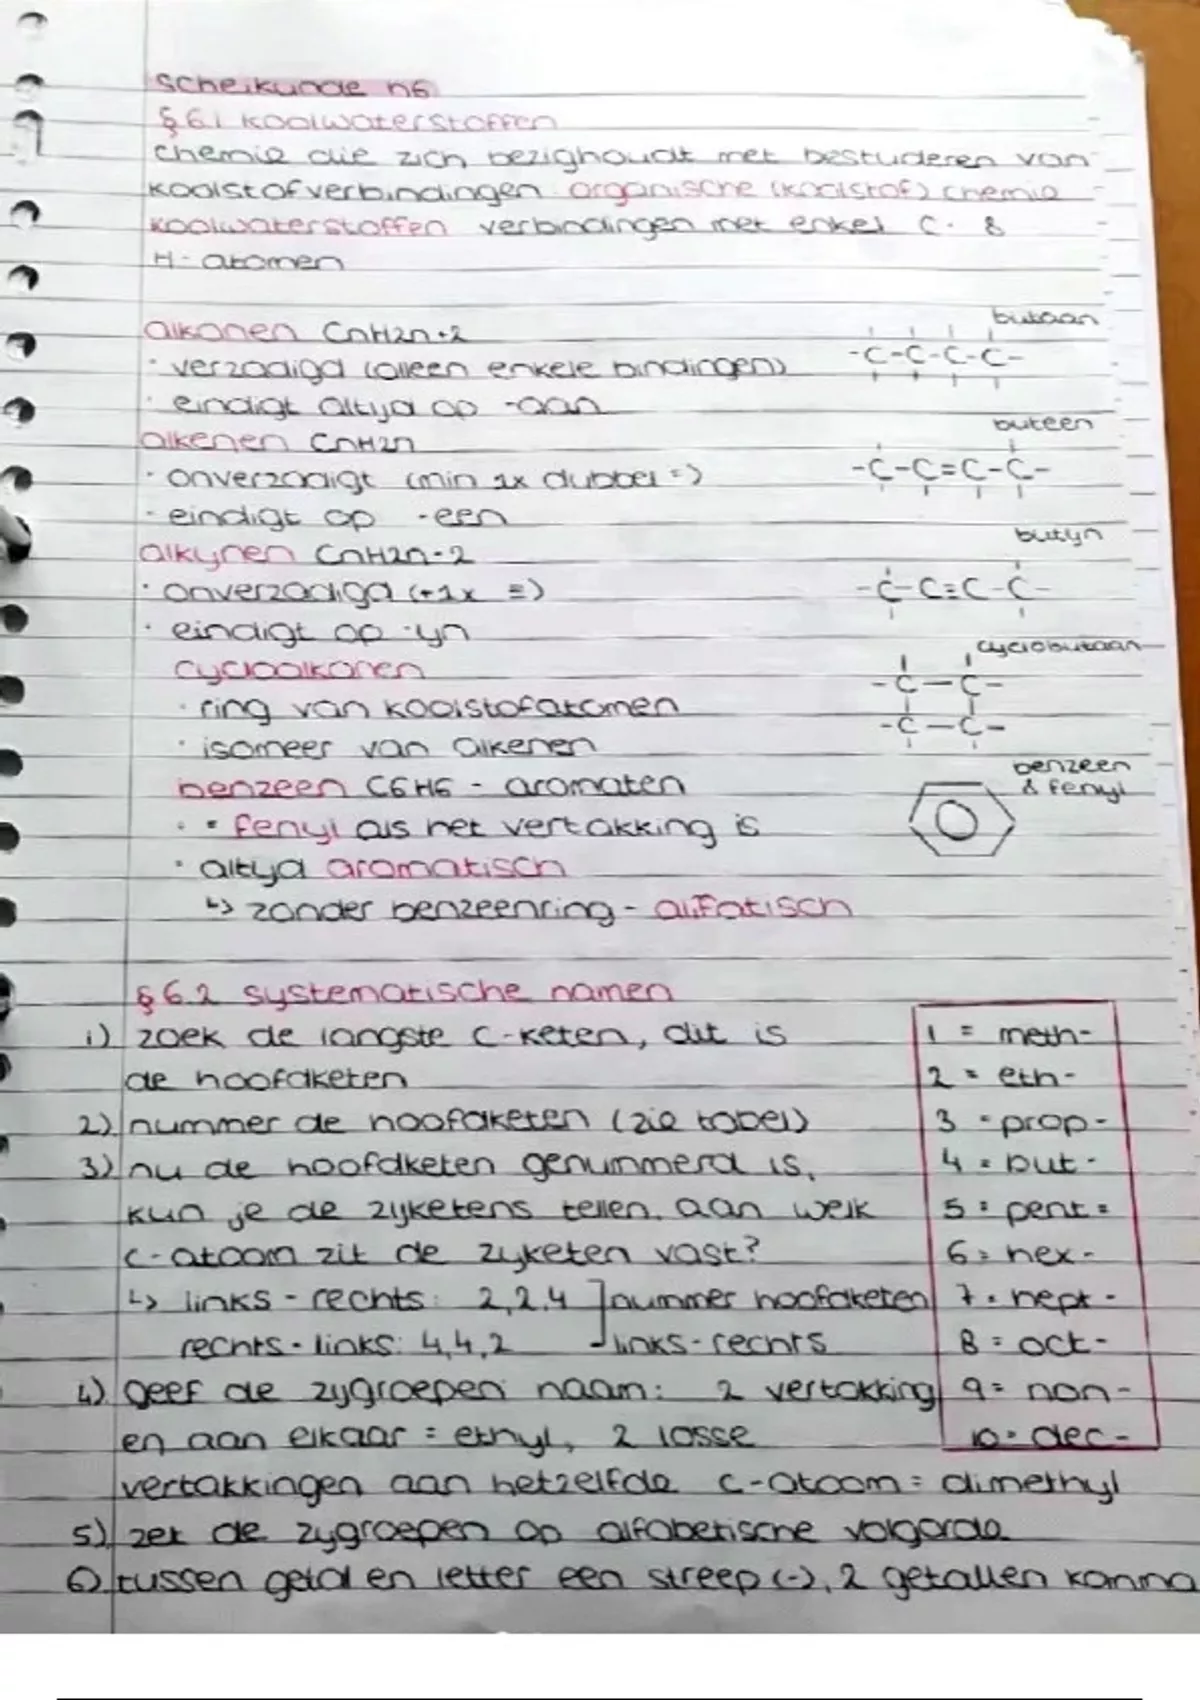 scheikunde h6
§6.1 koolwaterstoffen
chemie die zich bezighoudt met bestuderen van
koolstofverbindingen organische (koolstof) chemie
koolwaterstoffen verbindingen met enkel C- &
H-atomen
alkanen CnH2n+2
butaan
· verzadigd (alleen enkele bindingen)
-C-C-C-C-
· eindigt altijd op -aan
alkenen CnH2n
buteen
· onverzadigt (min 1x dubbel =)
-C-C=C-C-
· eindigt op -een
alkynen CnH2n-2
butyn
· onverzadigd (+1x ≡)
-C-C≡C-C-
· eindigt op -yn
cycloalkanen
cyclobutaan
-C-C-
· ring van koolstofatomen
-C-C-
· isomeer van alkenen
benzeen C6H6 - aromaten
benzeen
& fenyl
· fenyl als het vertakking is
· altijd aromatisch
↳ zonder benzeenring - alifatisch
§6.2 systematische namen
1) zoek de langste C-keten, dit is
de hoofdketen
2) nummer de hoofdketen (zie tabel)
3) nu de hoofdketen genummerd is,
kun je de zijketens tellen. aan welk
C-atoom zit de zijketen vast?
↳ links - rechts: 2,2,4 ] nummer hoofdketen
rechts - links: 4,4,2 links - rechts
4) geef de zijgroepen naam: 2 vertakking
en aan elkaar = ethyl, 2 losse
vertakkingen aan hetzelfde C-atoom = dimethyl
5) zet de zijgroepen op alfabetische volgorde
6) tussen getal en letter een streep (-), 2 getallen komma
1 = meth-
2 = eth-
3 = prop-
4 = but-
5 = pent-
6 = hex-
7 = hept-
8 = oct-
9 = non-
10 = dec-